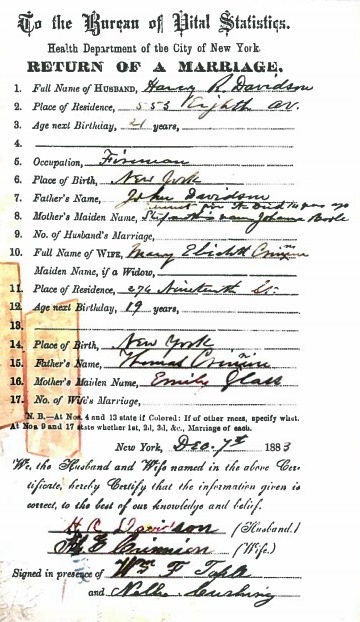 To the Bureau of Vital Statistics.
Health Department of the City of New York
RETURN OF A MARRIAGE.
1. Full Name of HUSBAND, Harry R. Davidson
2. Place of Residence, 553 Eighth Av.
3. Age next Birthday, 21 years,
4.
5. Occupation, Fireman
6. Place of Birth, New York
7. Father's Name, John Davidson
8. Mother's Maiden Name, Johanna
9. No. of Husband's Marriage,
10. Full Name of WIFE, Mary Elizabeth
Maiden Name, if a Widow,
11. Place of Residence, Nineteenth St.
12. Age next Birthday, 19 years,
13.
14. Place of Birth, New York
15. Father's Name, Thomas
16. Mother's Maiden Name, Emily Glass
17. No. of Wife's Marriage,
N. B.—At Nos. 4 and 13 state if Colored: If of other races, specify what.
At Nos 9 and 17 state whether 1st, 2d, 3d, &c., Marriage of each.
New York, Dec. 7th 1883
We, the Husband and Wife named in the above Cer-
tificate, hereby Certify that the information given is
correct, to the best of our knowledge and belief.
Davidson (Husband.)
M E Crinnion (Wife.)
Signed in presence of Wm F
and Nellie Cushing